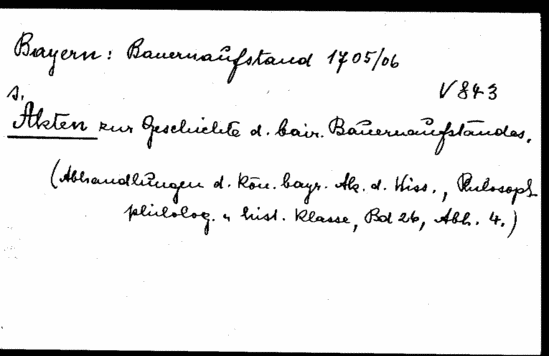 Bayern: Bauernaufstand 1705/06
V 843
s.
Akten zur Geschichte d. bair. Bauernaufstandes.
(Abhandlungen d. kön. bayr. Ak. d. Wiss., Philosoph.
philolog. u hist. Klasse, Bd 26, Abh. 4.)